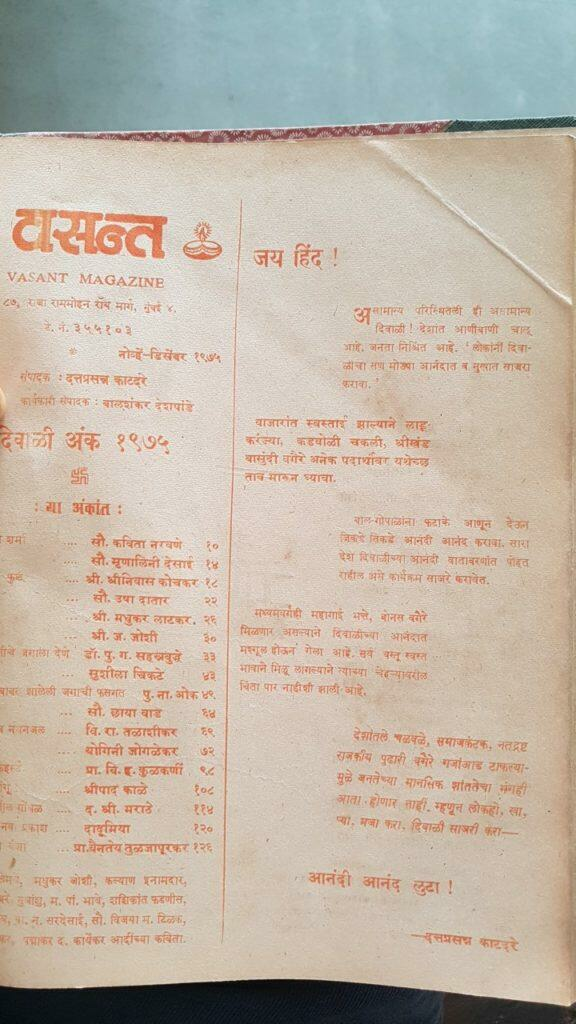 वासन्त
VASANT MAGAZINE
८७, राजा राममोहन रॉय मार्ग, मुंबई ४.
टे. नं. ३५५१०३
नोव्हें-डिसेंबर १९७५
संपादक : दत्तप्रसन्न काटदरे
कार्यकारी संपादक : बालशंकर देशपांडे
दिवाळी अंक १९७५
: या अंकांत :
शर्मा .... सौ. कविता नरवणे १०
.... सौ. मृणालिनी देसाई १४
.... श्री. श्रीनिवास कोचकर १८
.... सौ. उषा दातार २२
.... श्री. मधुकर लाटकर. २६
.... श्री. ज. जोशी ३०
जगाला देणे डॉ. पु. ग. सहस्रबुद्धे ३३
.... सुशीला चिकटे ४३
झालेली जगाची फसगत पु. ना. ओक ४९
.... सौ. छाया वाड ६४
.... वि. रा. तळाशीकर ६९
.... योगिनी जोगळेकर ७२
.... प्रा. वि. इ. कुळकर्णी ९८
.... श्रीपाद काळे १०८
.... द. श्री. मराठे ११४
प्रकाश .... दादूमिया १२०
.... प्रा. वैनतेय तुळजापूरकर १२६
मधुकर जोशी, कल्याण इनामदार,
सुधांशु, म. पां. भावे, शशिकांत फडणीस,
ना. सरदेसाई, सौ. विजया म. टिळक,
पद्माकर द. कार्येकर आदींच्या कविता.
जय हिंद !
असामान्य परिस्थितली ही असामान्य
दिवाळी ! देशांत आणीबाणी चालू
आहे. जनता निश्चित आहे. ' लोकांनीं दिवा-
ळीचा सण मोठ्या आनंदात व सुखात साजरा
करावा. '
बाजारांत स्वस्ताई झाल्याने लाडू
करंज्या, कडबोळी चकली, श्रीखंड
बासुंदी वगैरे अनेक पदार्थांवर यथेच्छ
ताव मारून घ्यावा.
बाल-गोपाळांना फटाके आणून देऊन
जिकडे तिकडे आनंदी आनंद करावा. सारा
देश दिवाळीच्या आनंदी वातावरणांत पोहत
राहील असे कार्यक्रम साजरे करावेत.
मध्यमवर्गही महागाई भत्ते, बोनस वगैरे
मिळणार असल्याने दिवाळीच्या आनंदात
मश्गूल होऊन गेला आहे. सर्व वस्तू स्वस्त
भावाने मिळू लागल्याने त्याच्या चेहऱ्यावरील
चिंता पार नाहीशी झाली आहे.
देशांतले चळवळे, समाजकंटक, नतद्रष्ट
राजकीय पुढारी वगैरे गजांआड टाकल्या-
मुळे जनतेच्या मानसिक शांततेचा भंगही
आता होणार नाही. म्हणून लोकहो, खा,
प्या, मजा करा, दिवाळी साजरी करा—
आनंदी आनंद लुटा !
—दत्तप्रसन्न काटदरे